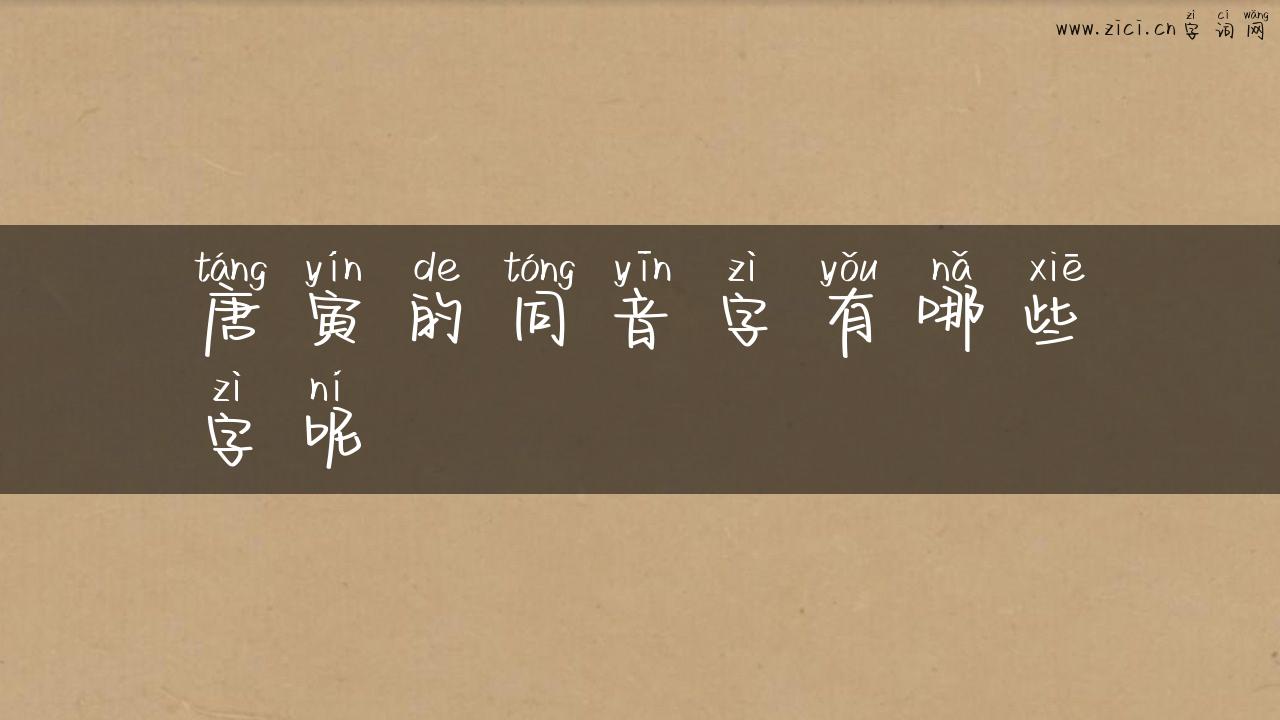 zì cí wǎng
www.zici.cn 字词网
táng yín de tóng yīn zì yǒu nǎ xiē
唐寅的同音字有哪些
zì ní
字呢